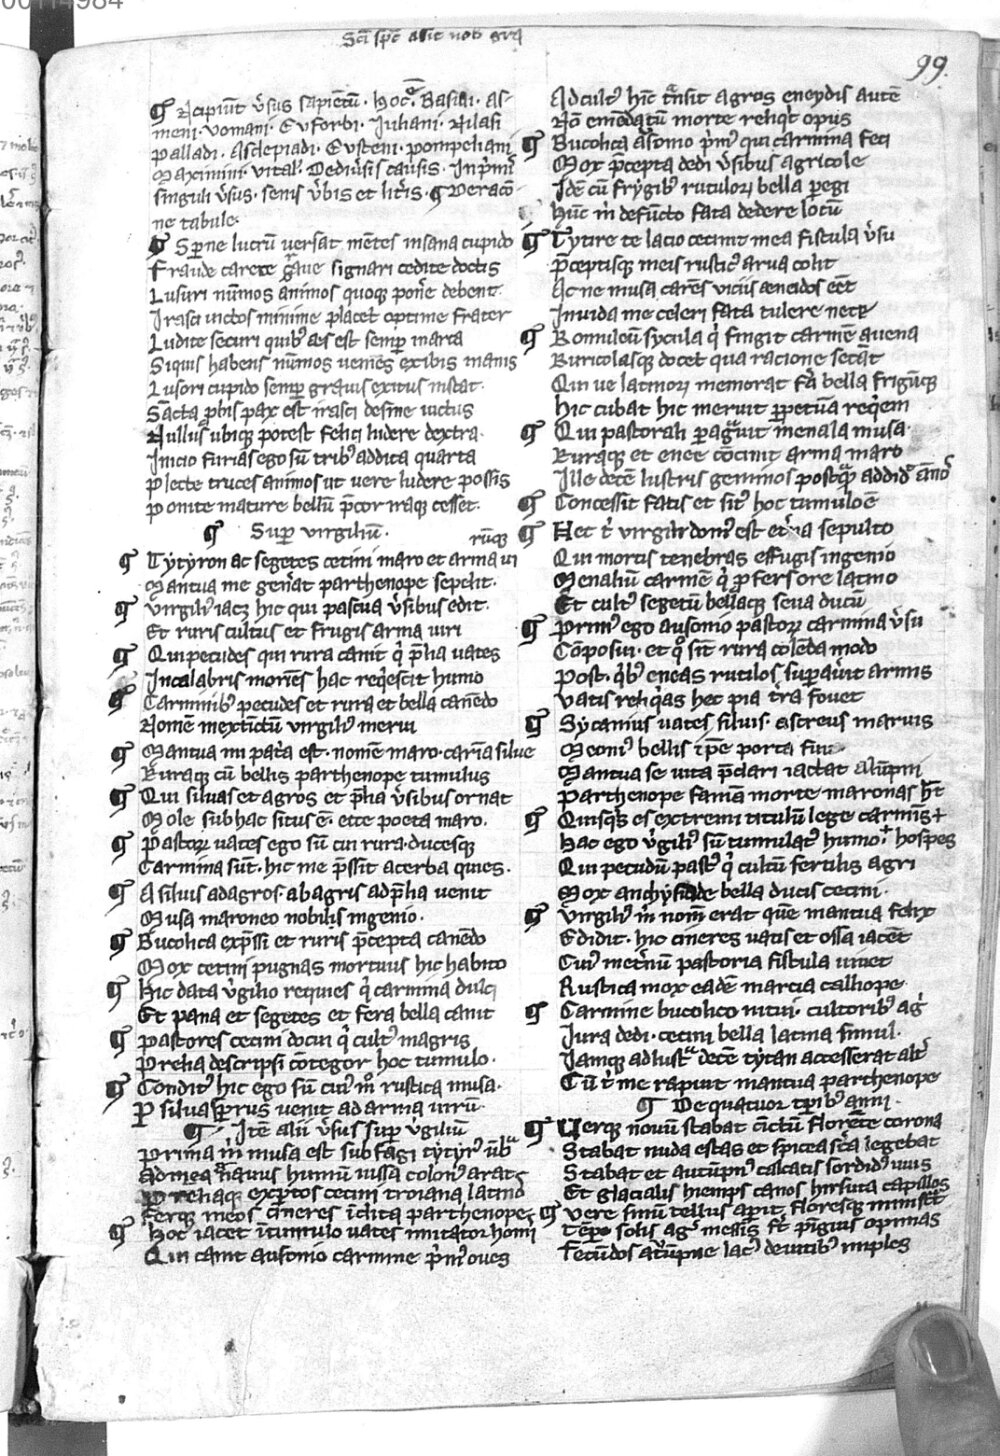 00114984
Sc̄i sp̄c assit nob gr̄a
99.
¶ Incipiūt v̓sus sapientū. hoc ē. Basilii. As-
meni. vomani. Euforbi. Iuliani. hilasi
palladi. Asclepiadi. Eusteni. pompeliani
Maximini. vital̓. De diu̓sis causis. In p̓mis
singuli v̓sus. senis v̓bis et litr̓is. ¶ De racō-
ne tabule.
¶ Sperne lucrū versat mētes insana cupido
Fraude carete graue signari cedite doctis
Lusuri nūmos animos quoque pon̄e debent.
Irasci victos minime placet optime frater
Ludite securi quib̓ aes est semp̄ in arca
Siquis habens nūmos veniēs exibis inanis
Lusori cupido semp̄ grauis exitus instat.
Sancta ꝓbis pax est irasci desine victus
Nullus ubique potest felici ludere dextra.
Inicio furias ego sū trib̓ addita quarta
Plecte truces animos ut vere ludere possis
Ponite mature bellū p̄cor iraque cesset.
¶ Sup̄ virgiliū.
rūque
¶ Tytyron ac segetes cecini maro et arma vi
Mantua me gen̓at parthenope sepelit.
¶ Virgili̓ iacet hic qui pascua v̓sibus edit.
Et ruris cultus et frugis arma viri
¶ Qui pecudes qui rura canit q̓ p̄lia vates
In calabris moriēs hac req̓escit humo
¶ Carminib̓ pecudes et rura et bella canēdo
Nomē inextīctū virgilius merui
¶ Mantua mi pat̓a est. nomē maro. carīa silue
Ruraque cū bellis parthenope tumulus
¶ Qui siluas et agros et p̄lia v̓sibus ornat
Mole sub hac situs ē. ecce poeta maro.
¶ Pastorū vates ego sū cui rura. ducesque
Carmina sūt. hic me p̄ssit acerba quies.
¶ A siluis ad agros. ab agris ad p̄lia venit
Musa maroneo nobilis ingenio.
¶ Bucolica exp̄ssi et ruris p̄cepta canēdo
Mox cecini pugnas mortuus hic habito
¶ Hic data v̓gilio requies q̓ carmina dulci
Et pana et segetes et fera bella canit
¶ Pastores cecini docui q̓ cult̓ in agris
Prelia descripsi cōtegor hoc tumulo.
¶ Condit̓ hic ego sū cui̓ mō rustica musa.
P̄ siluas p̄ rus venit ad arma virū.
¶ Itē alii v̓sus sup̄ v̓giliū
Prima m̓ musa est sub fagi tytyr̓ ūbra
Ad mea nauus humū iussa colon̓ arat
Preliaque exp̄tos cecini troiana latinos
Fertque meos cineres īclita parthenope
¶ Hoc iacet ī tumulo vates imitator homi
Qui canit ausonio carmine p̓m̓ oues
Ad cult̓ hīc trāsit agros eneydis autē
Nō emēdatū morte reliq̓t opus
¶ Bucolica ausonio p̓m̓ qui carmina feci
Mox p̄cepta dedi v̓sibus agricole
Idē cū frygib̓ rutulorū bella peregi
Hūc m̓ defūcto fata dedere locū
¶ Tytire te lacio cecinit mea fistula v̓su
P̄ceptisque meis rustic̓ arua colit
Ac ne musa carēs viciis aeneidos eēt
Inuida me celeri fata tulere nece
¶ Romuleū sycula q̓ fingit carmē auena
Ruricolasque docet qua racione secāt
Qui ue latinorū memorat fera bella frigūque
Hic cubat hic meruit perpetuā req̓em
¶ Qui pastorali peragrauit menala musa.
Ruraque et enee cōcinit arma maro
Ille decē lustris geminos postquā addid̓ ānos
¶ Concessit fatis et sit̓ hoc tumulo ē
¶ Hec t̓ virgili dom̓ est et̓na sepulto
Qui mortis tenebras effugis ingenio
Menaliū carmē q̓ ꝓfers ore latino
Et cult̓ segetū bellaque seua ducū
¶ Prim̓ ego ausonio pastorū carmina v̓su
Cōposui. et q̓ sīt rura colēda modo
Post. q̓b̓ eneas rutilos supauit armis
Vatis reliq̓as hec pia t̓ra fouet
¶ Sycanius vates siluis. ascreus in aruis
Meoni̓ bellis ip̄e poeta fui
Mantua se vita p̄clari iactat alūpni
Parthenope famā morte maronis h̄t
¶ Quisq̓s es extremi titulū lege carminis
Hac ego v̓gili̓ sū tumulat̓ humo. hospes
Qui pecudū past̓ q̓ cultū fertilis agri
Mox anchysiade bella ducis cecini.
¶ Virgili̓ m̓ nom̄ erat quē mantua felix
Edidit. hic cineres vatis et ossa iacēt
Cui̓ metrūm pastoria fistula viuet
Rustica mox eadē marcia calliope.
¶ Carmine bucolico nitui. cultorib̓ agr̓
Iura dedi. cecini bella latina simul.
Iamque ad lustra decē tytan accesserat alt̓
Cū t̓ me rapuit mantua parthenope
¶ De quatuor tp̄rib̓ anni.
¶ Uerque nouū stabat cīctū florēte corona
Stabat nuda estas et spicea sērta legebat
Stabat et autūpn̓ calcatis sordid̓ uuis
Et glacialis hiemps canos hirsuta capillos
¶ Vere sinū tellus aperit floresque ministrat
Tēpe solis ager messis fert pinguis opimas
Fecūdos autūpne lac̓ deuitib̓ imples